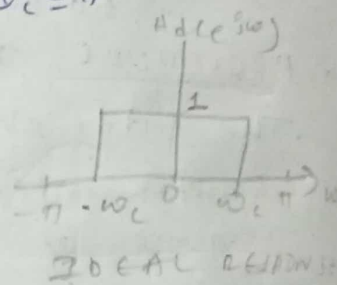 Hd(e^jω)
1
-π -ωc 0 ωc π ω
IDEAL RESPONSE